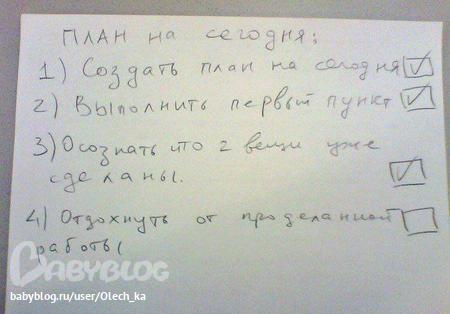 ПЛАН на сегодня:
1) Создать план на сегодня
2) Выполнить первый пункт
3) Осознать что 2 вещи уже
сделаны.
4) Отдохнуть от проделанной
работы
BABYBLOG
babyblog.ru/user/Olech_ka